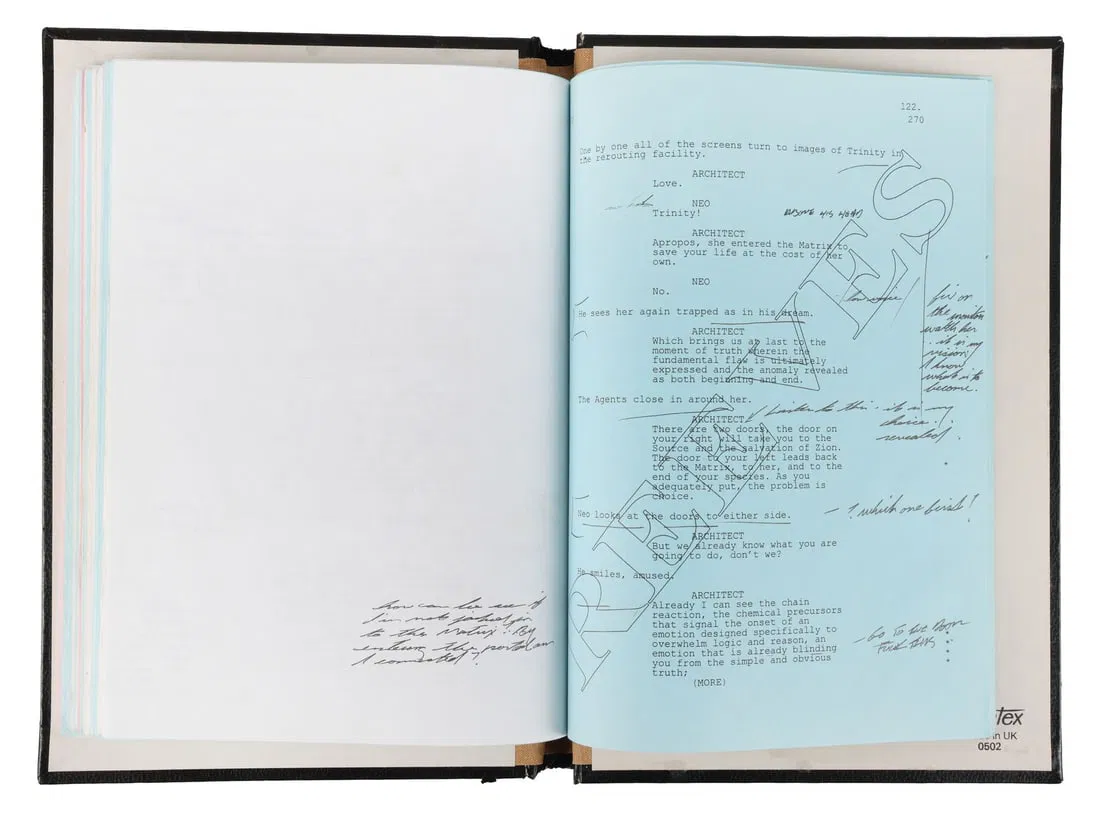 how can he see if
I'm not jacked in
to the Matrix? By
entering the portal am
I connected?
122.
270
One by one all of the screens turn to images of Trinity in
the rerouting facility.
ARCHITECT
Love.
NEO
Trinity!
ARCHITECT
Apropos, she entered the Matrix to
save your life at the cost of her
own.
NEO
No.
He sees her again trapped as in his dream.
fix on
the monitor
watch her
. it is my
vision!
I know
what is to
become.
ARCHITECT
Which brings us at last to the
moment of truth wherein the
fundamental flaw is ultimately
expressed and the anomaly revealed
as both beginning and end.
The Agents close in around her.
ARCHITECT
Listen to this. it is my
choice.
revealed.
There are two doors, the door on
your right will take you to the
Source and the salvation of Zion.
The door to your left leads back
to the Matrix, to her, and to the
end of your species. As you
adequately put, the problem is
choice.
Neo looks at the doors to either side.
- ? which one first?
ARCHITECT
But we already know what you are
going to do, don't we?
He smiles, amused.
ARCHITECT
Already I can see the chain
reaction, the chemical precursors
that signal the onset of an
emotion designed specifically to
overwhelm logic and reason, an
emotion that is already blinding
you from the simple and obvious
truth;
- GO TO HER DOOR
FUCK THIS
(MORE)
REEVES
in UK
0502